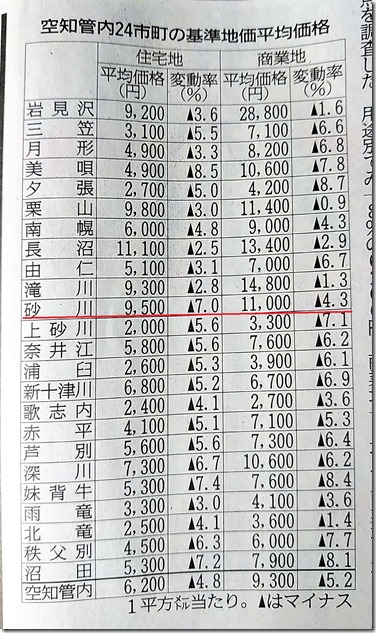 空知管内24市町の基準地価平均価格
住宅地 商業地
平均価格(円) 変動率(%) 平均価格(円) 変動率(%)
岩見沢 9,200 ▲3.6 28,800 ▲1.6
三笠 3,100 ▲5.5 7,100 ▲6.6
月形 4,900 ▲3.3 8,200 ▲6.8
美唄 4,900 ▲8.5 10,600 ▲7.8
夕張 2,700 ▲5.0 4,200 ▲8.7
栗山 9,800 ▲3.0 11,400 ▲0.9
南幌 6,000 ▲4.8 9,000 ▲4.3
長沼 11,100 ▲2.5 13,400 ▲2.9
由仁 5,100 ▲3.1 7,000 ▲6.7
滝川 9,300 ▲2.8 14,800 ▲1.3
砂川 9,500 ▲7.0 11,000 ▲4.3
上砂川 2,000 ▲5.6 3,300 ▲7.1
奈井江 5,800 ▲5.6 7,600 ▲6.2
浦臼 2,600 ▲5.3 3,900 ▲6.1
新十津川 6,800 ▲5.2 6,700 ▲6.9
歌志内 2,400 ▲4.1 2,700 ▲3.6
赤平 4,100 ▲5.1 7,100 ▲5.3
芦別 5,600 ▲5.6 7,300 ▲6.4
深川 7,300 ▲6.7 10,600 ▲6.2
妹背牛 5,300 ▲7.4 7,600 ▲8.4
雨竜 3,300 ▲3.0 4,100 ▲3.6
北竜 2,500 ▲4.1 3,600 ▲1.4
秩父別 4,500 ▲6.3 6,000 ▲7.7
沼田 5,300 ▲7.2 7,900 ▲8.1
空知管内 6,200 ▲4.8 9,300 ▲5.2
1平方メートル当たり。▲はマイナス